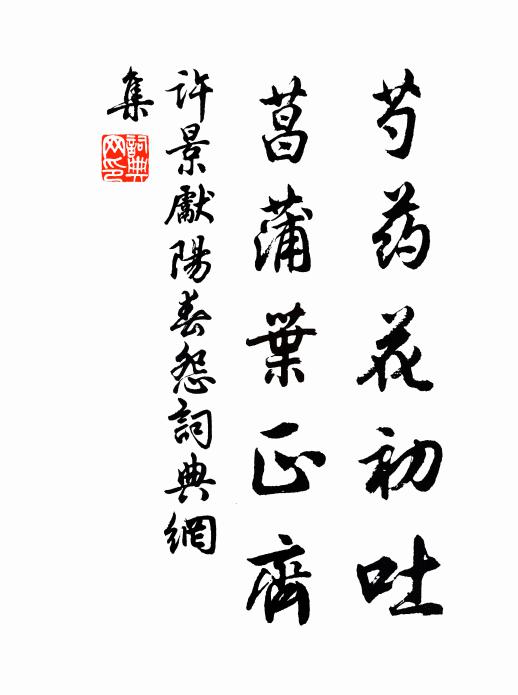 芍药花初吐
菖蒲葉正齊
許景獻陽春怨詞典網
集
詞典網印